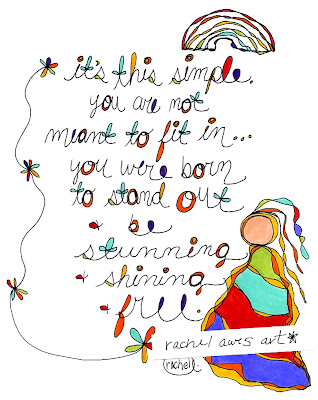 it's this simple.
you are not
meant to fit in...
you were born
to stand out
+ be
stunning
+ shining
+ free.
rachel awes art*
rachel